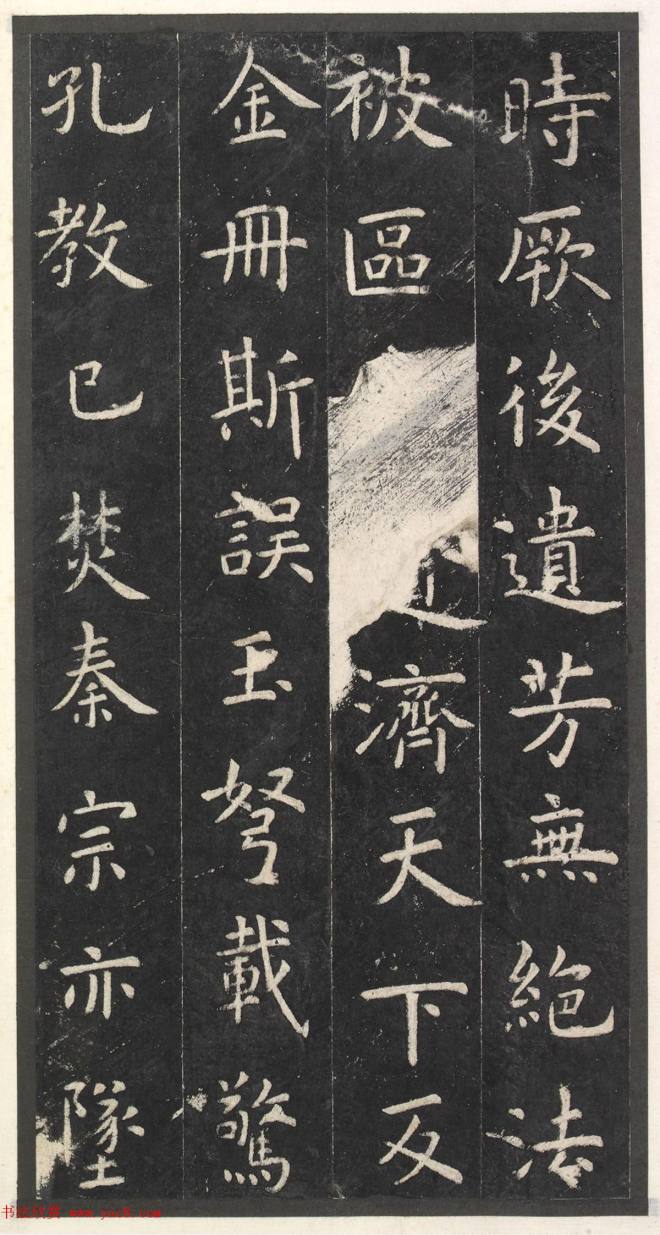 時厥後遺芳無絶法
被區濟天下及
金冊斯誤玉弩載驚
孔教已焚秦宗亦墜
书法欣赏 www.yac8.com